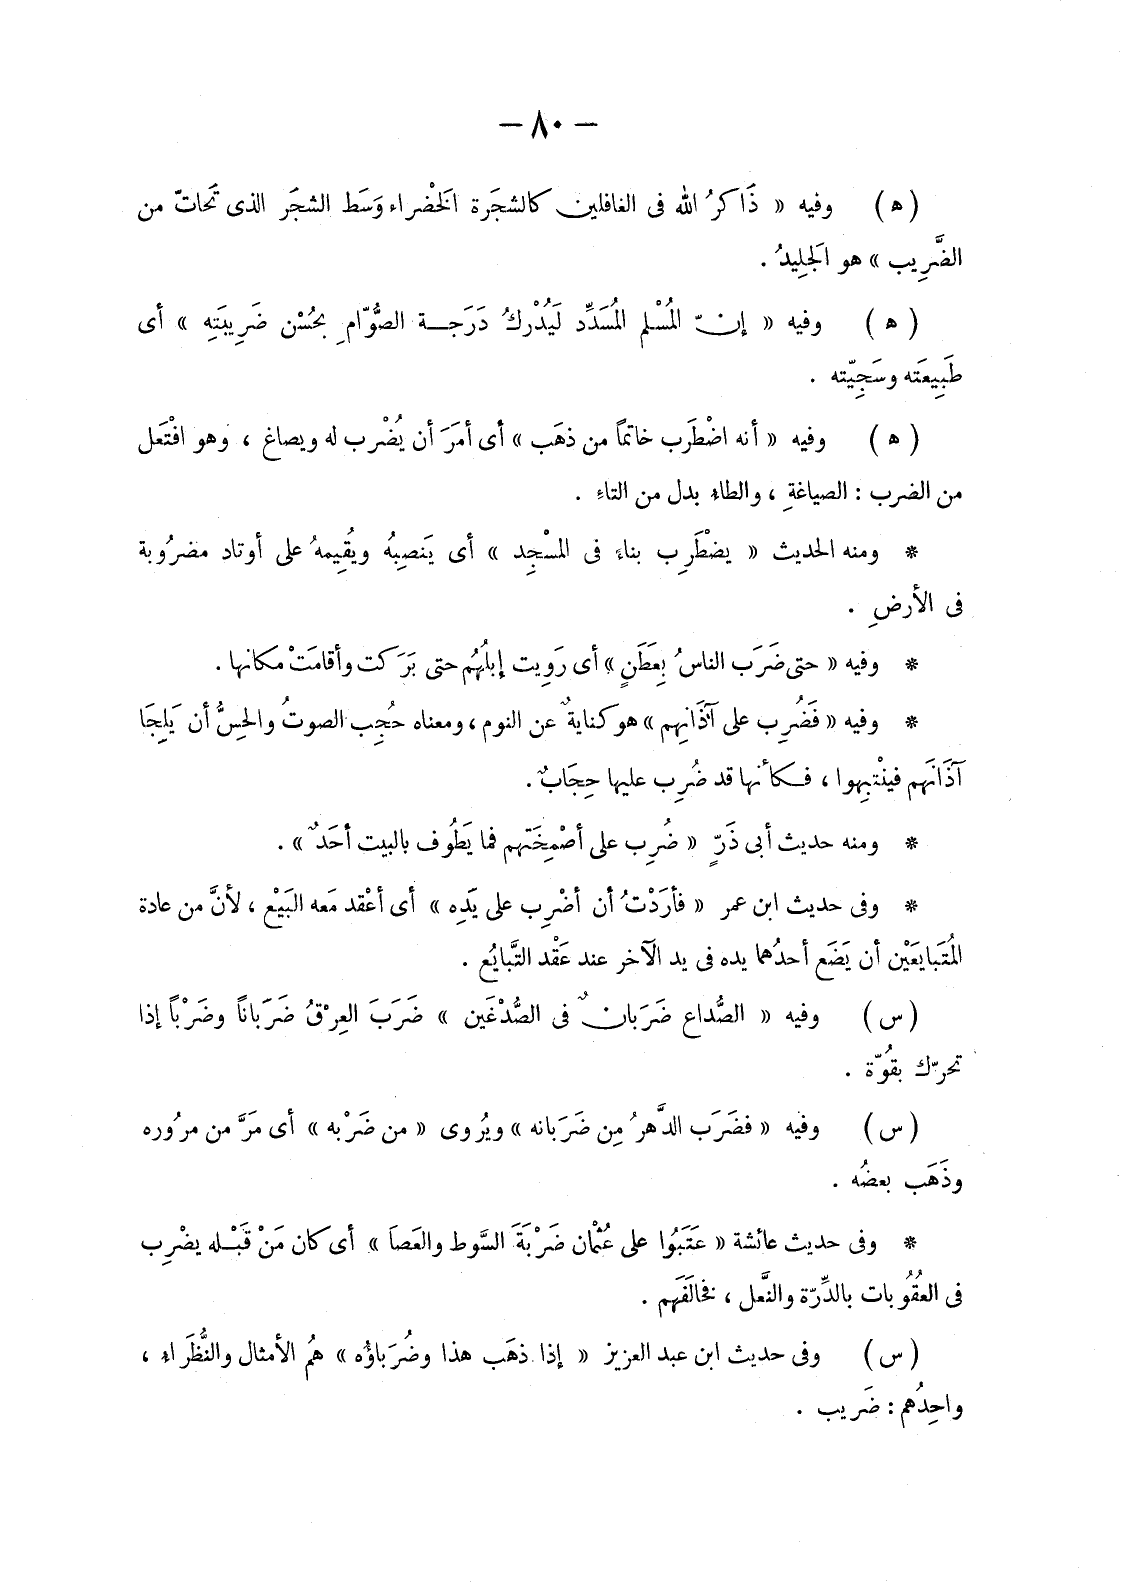 — ٨٠ —
( ه ) وفيه « ذَاكرُ الله فى الغافلين كالشجَرة الخَضْراء وَسَط الشجَر الذى تَحاتّ من
الضَّرِيب » هو الجَلِيدُ .
( ه ) وفيه « إنّ المُسْلم المُسَدِّد لَيُدْركُ دَرَجة الصُّوّامِ بحُسْن ضَرِيبَتِه » أى
طَبِيعَته وسَجِيّته .
( ه ) وفيه « أنه اضْطَرب خاتمًا من ذهَب » أى أمَرَ أن يُضْرب له ويصاغ ، وهو افْتَعل
من الضرب : الصياغةِ ، والطاء بدل من التاءِ .
* ومنه الحديث « يضْطَرِب بناءً فى المسْجِد » أى يَنصِبُه ويُقِيمهُ على أوتاد مضرُوبة
فى الأرضِ .
* وفيه « حتى ضَرَب الناسُ بِعَطَنٍ » أى رَوِيت إبلُهُم حتى بَرَكت وأقامَتْ مكانها .
* وفيه « فَضُرِب على آذَانِهم » هو كنايةٌ عن النوم ، ومعناه حُجِب الصوتُ والحِسُّ أن يَلِجَا
آذَانَهم فينْتبِهوا ، فكأنها قد ضُرِب عليها حِجَابٌ .
* ومنه حديث أبى ذَرّ « ضُرِب على أصْمِخَتهم فما يَطُوف بالبيت أحَدٌ » .
* وفى حديث ابن عمر « فأرَدْتُ أن أضْرِب على يَدِه » أى أعْقد مَعه البَيْع ، لأنَّ من عادة
المُتَبايعَيْن أن يَضَع أحدُهما يده فى يد الآخر عند عَقْد التَّبايُع .
( س ) وفيه « الصُّداع ضَرَبانٌ فى الصُّدْغَين » ضَرَبَ العِرْقُ ضَرَبانًا وضَرْبًا إذا
تحرّك بقُوّة .
( س ) وفيه « فضَرَب الدَّهرُ مِن ضَرَبانه » ويُروى « من ضَرْبه » أى مَرَّ من مرُوره
وذَهَب بعضُه .
* وفى حديث عائشة « عَتَبُوا على عُثمْان ضَرْبَةَ السَّوط والعَصَا » أى كان مَنْ قَبْله يضْرِب
فى العقُوُبات بالدِّرّة والنَّعل ، فخالَفَهم .
( س ) وفى حديث ابن عبد العزيز « إذا ذهَب هذا وضُرَباؤُه » هُم الأمثال والنُّظَراء ،
واحِدُهم : ضَريب .